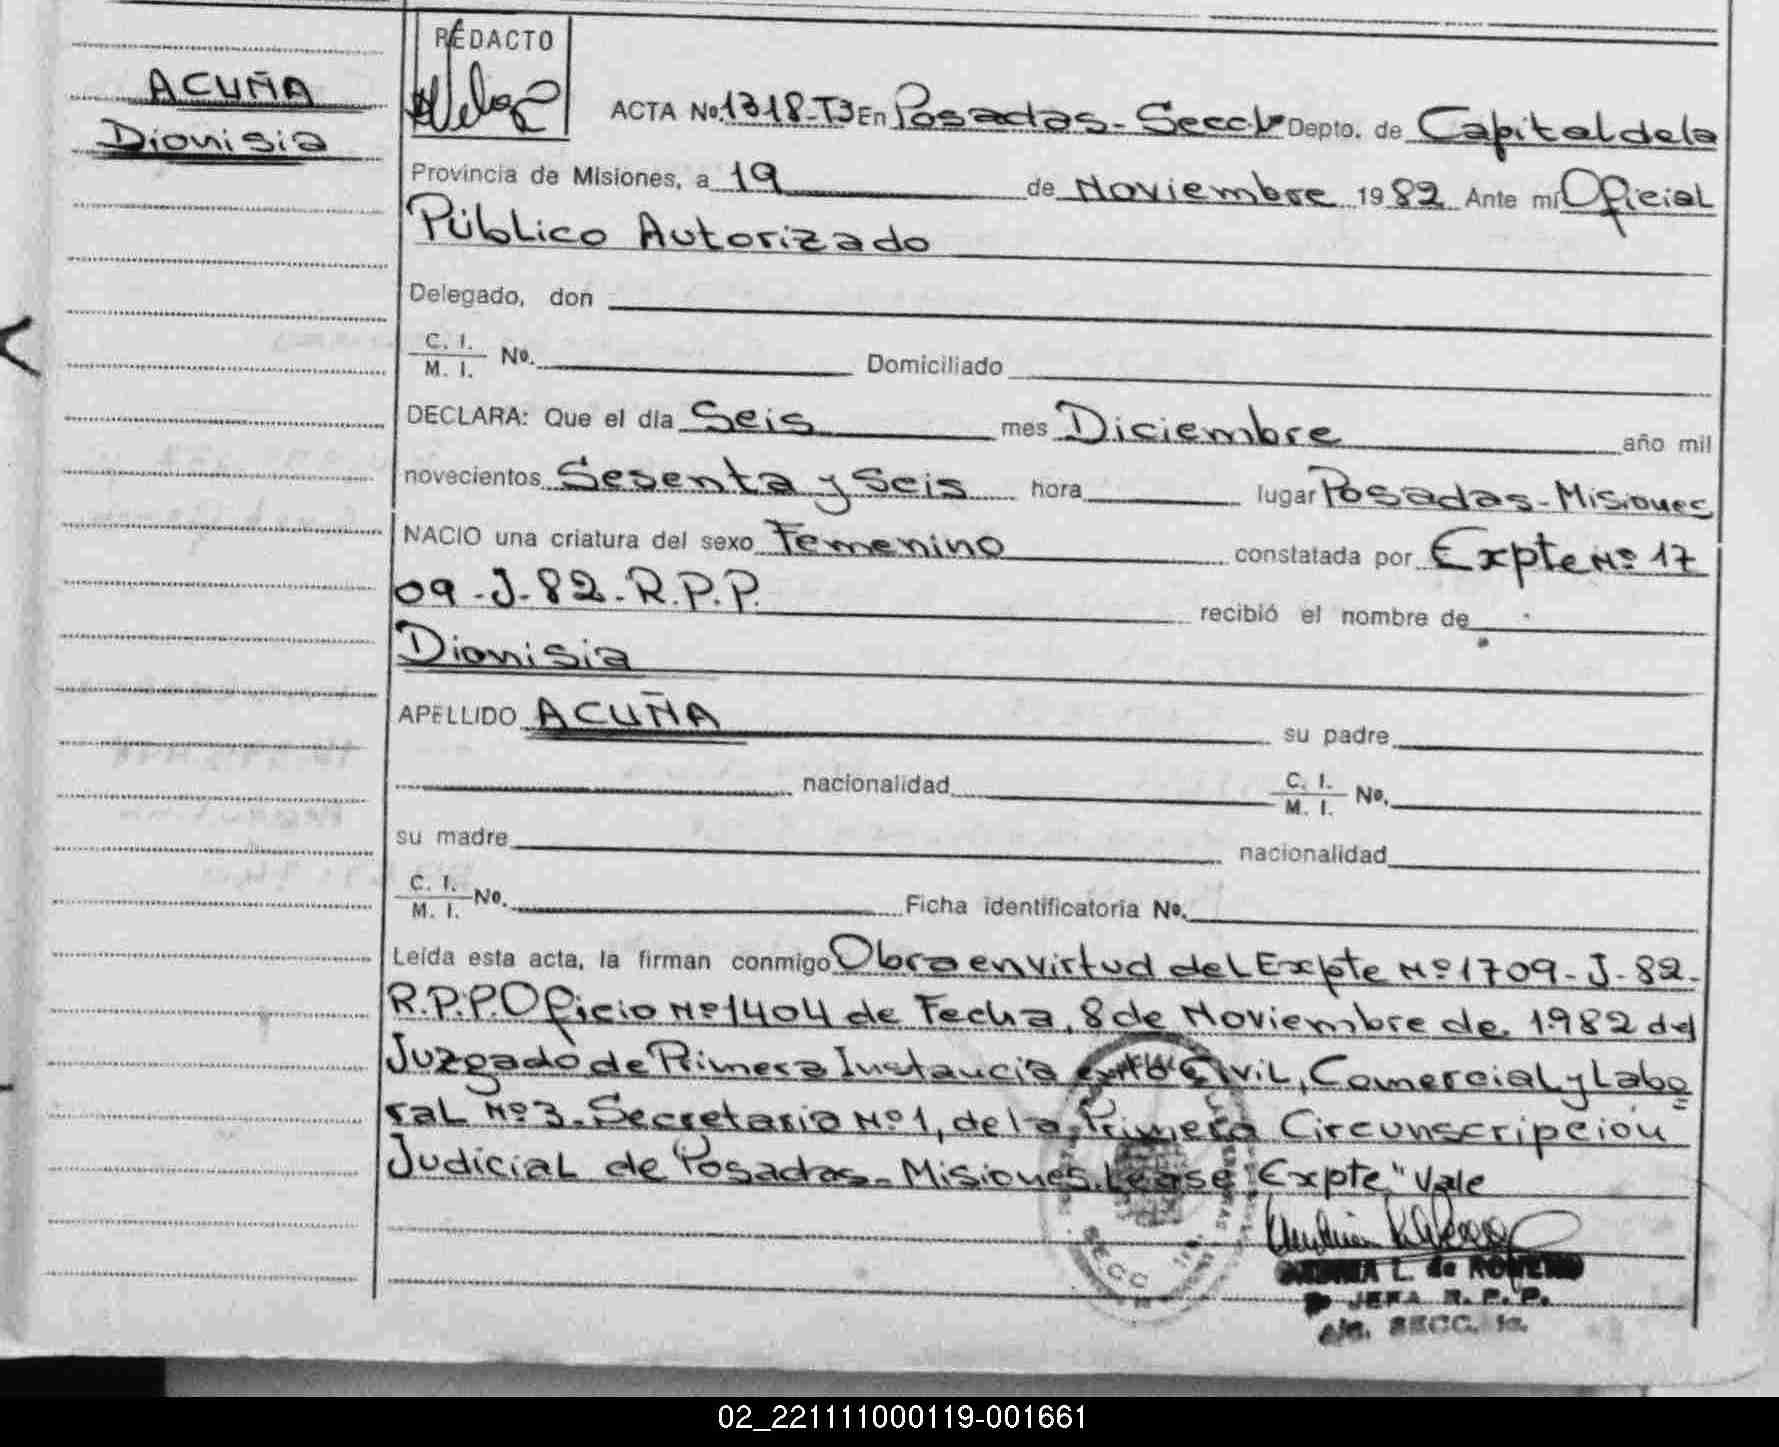 ACUÑA
Dionisia
REDACTO
ACTA No. 1318-T3 En Posadas - Secc 1ª Depto. de Capital de la
Provincia de Misiones, a 19 de Noviembre 1982 Ante mí Oficial
Público Autorizado
Delegado, don
C. I.
M. I. No. Domiciliado
DECLARA: Que el día Seis mes Diciembre año mil
novecientos Sesenta y Seis hora lugar Posadas - Misiones
NACIO una criatura del sexo Femenino constatada por Expte Nº 17
09-J-82-R.P.P. recibió el nombre de
Dionisia
APELLIDO ACUÑA su padre
nacionalidad C. I.
M. I. No.
su madre nacionalidad
C. I.
M. I. No. Ficha identificatoria No.
Leída esta acta, la firman conmigo Obra en virtud del Expte Nº 1709-J-82-
R.P.P. Oficio Nº 1404 de Fecha, 8 de Noviembre de 1982 del
Juzgado de Primera Instancia en lo Civil, Comercial y Labo
ral Nº 3-Secretaria Nº 1, de la Primera Circunscripción
Judicial de Posadas - Misiones. Lease "Expte" Vale
SECC 1ra.
L. de ROMERO
JEFA R. P. P.
SECC. 1a.
02_221111000119-001661